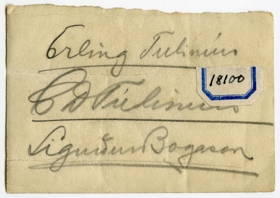 Erling Tulinius
18100
C D Tulinius
Sigurður Bogason